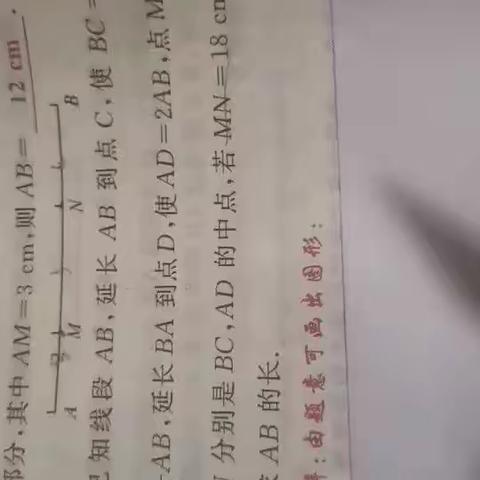 部分,其中 AM=3 cm,则 AB= 12 cm .
A M N B
知线段 AB,延长 AB 到点 C,使 BC=
AB,延长 BA 到点 D,使 AD=2AB,点 M
分别是 BC,AD 的中点,若 MN=18 cm
AB 的长.
:由题意可画出图形: